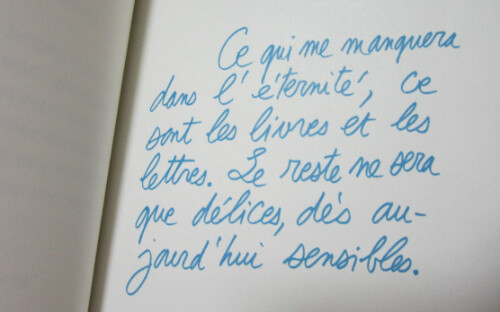 Ce qui me manquera
dans l'éternité, ce
sont les livres et les
lettres. Le reste ne sera
que délices, dès au-
jourd'hui sensibles.